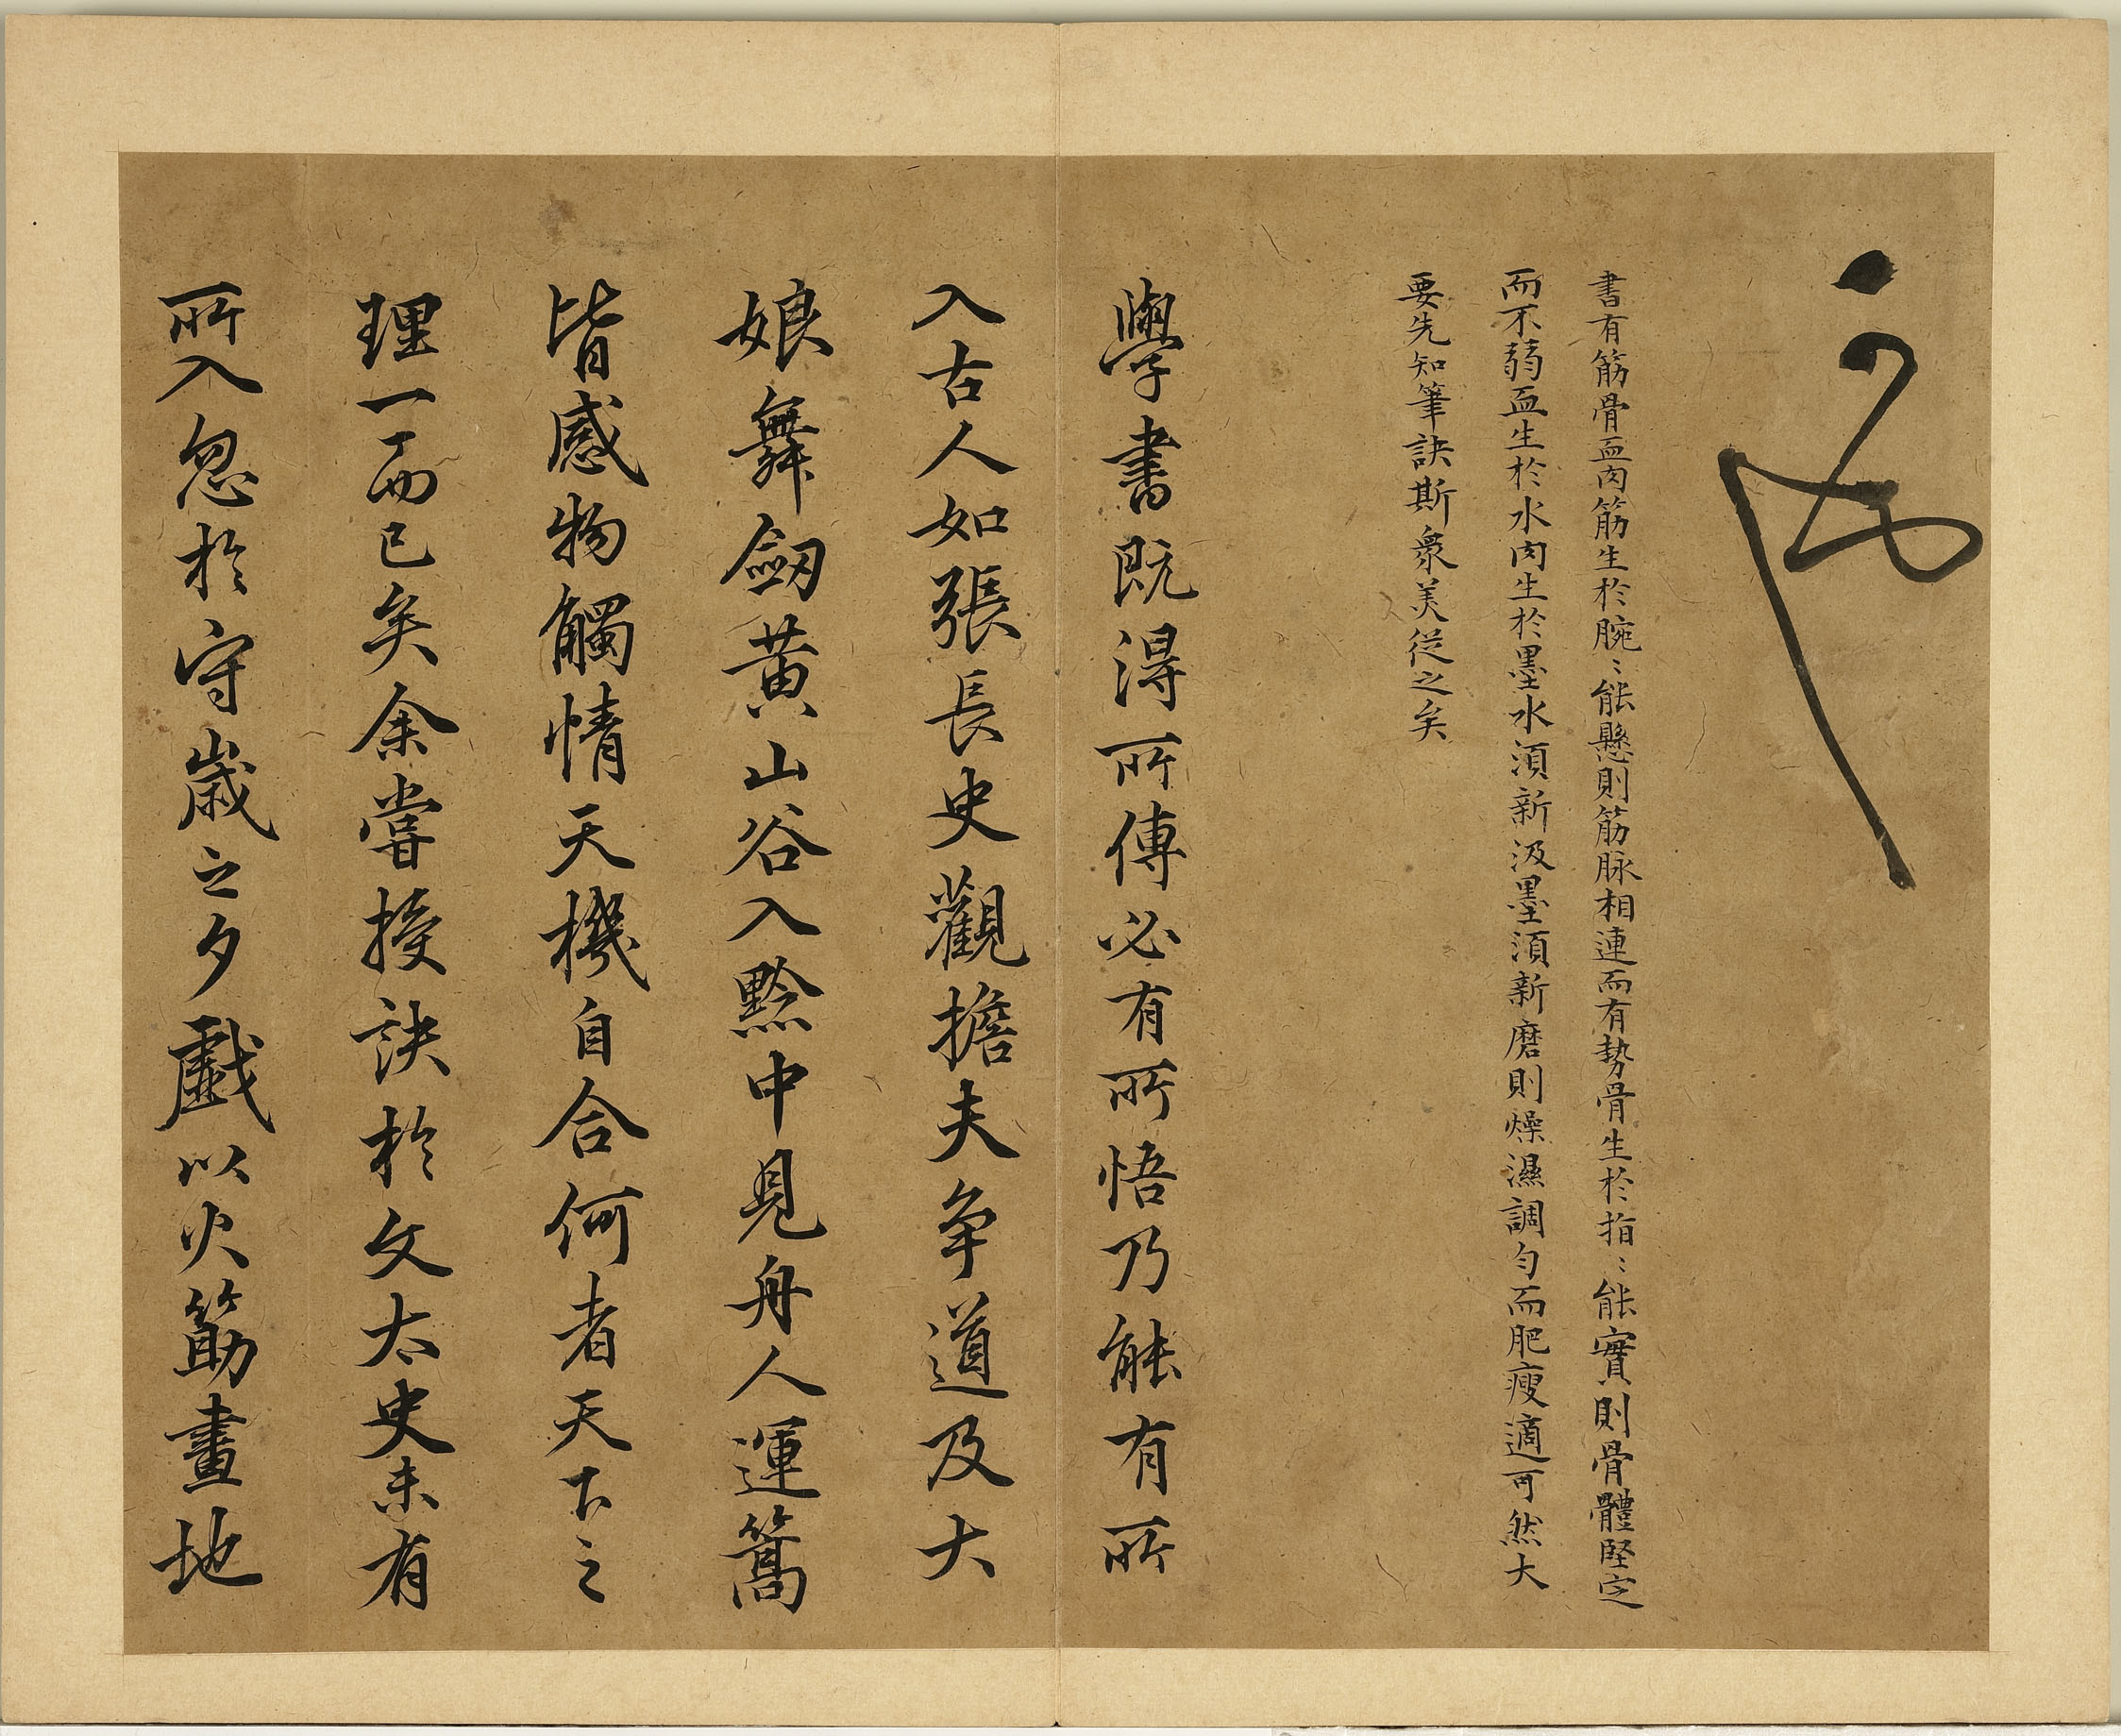 書有筋骨血肉筋生於腕〻能懸則筋脉相連而有勢骨生於指〻能實則骨體堅定
而不弱血生於水肉生於墨水須新汲墨須新磨則燥濕調勻而肥瘦適可然大
要先知筆訣斯衆美從之矣
學書既得所傳必有所悟乃能有所
入古人如張長史觀擔夫争道及大
娘舞劔黄山谷入黔中見舟人運篙
皆感物觸情天機自合何者天下之
理一而已矣余嘗授訣於文太史未有
所入忽於守歲之夕戲以火筯畫地